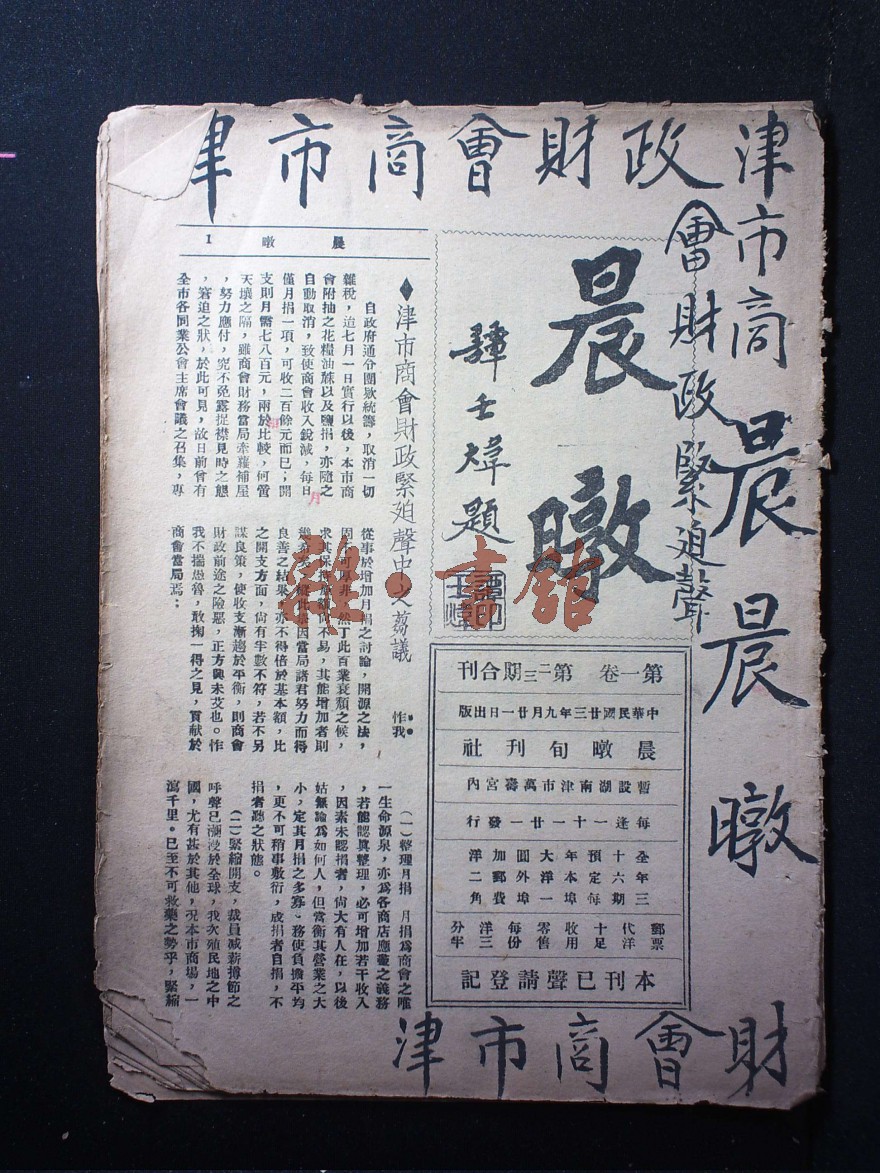 津市商會財政
津市商
會財政緊迫聲
晨晨暾
財會商市津
晨暾
譚壬煒題
第一卷 第二三期合刊
中華民國廿三年九月廿一日出版
晨暾旬刊社
暫設湖南津市萬壽宮內
每逢一十一廿一發行
全年三
十六期
預定每
年本埠
大洋一
圓外埠
加郵費
洋二角
郵票
代洋
十足
收用
零售
每份
洋三
分半
本刊已聲請登記
晨暾 1
◆津市商會財政緊廹聲中之芻議
怍我
自政府通令團欵統籌，取消一切
雜稅，迨七月一日實行以後，本市商
會附抽之花糧油蔴以及鹽捐，亦隨之
自動取消，致使商會收入銳減，每日
僅月捐一項，可收二百餘元而已；開
支則月需七八百元，兩於比較，何啻
天壤之隔，雖商會財務當局牽蘿補屋
，努力應付，究不免露捉襟見肘之態
，窘迫之狀，於此可見，故日前曾有
全市各同業公會主席會議之召集，專
從事於增加月捐之討論，開源之法，
因可厚非，然丁此百業衰頹之候，
求其保持原額尚不易，其能增加者則
幾希矣，縱此次因當局諸君努力而得
良善之結果，亦不得倍於基本額，比
之開支方面，尙有半數不符，若不另
謀良策，使收支漸趨於平衡，則商會
財政前途之險惡，正方興未艾也。怍
我不揣愚魯，敢掬一得之見，貢献於
商會當局焉：
（一）整理月捐 月捐爲商會之唯
一生命源泉，亦爲各商店應盡之義務
，若能認眞整理，必可增加若干收入
，因素未認捐者，尙大有人在，以後
姑無論爲如何人，但當衡其營業之大
小，定其月捐之多寡，務使負擔平均
，更不可稍事敷衍，成捐者自捐，不
捐者聽之狀態。
（二）緊縮開支，裁員减薪撙節之
呼聲已瀰漫於全球，我次殖民地之中
國，尤有甚於其他，況本市商場，一
瀉千里。已至不可救藥之勢乎，緊縮
雜·書館